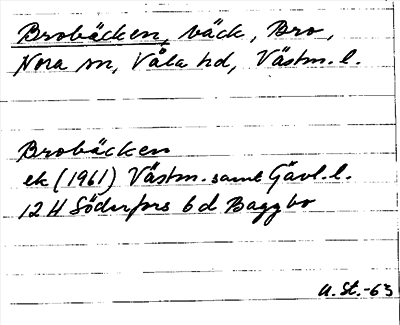 Brobäcken, bäck, Bro,
Nora sn, Våla hd, Västm. l.
Brobäcken
ek (1961) Västm. samt Gävl. l.
12 H Söderfors 6 d Baggbo
U. St. -63